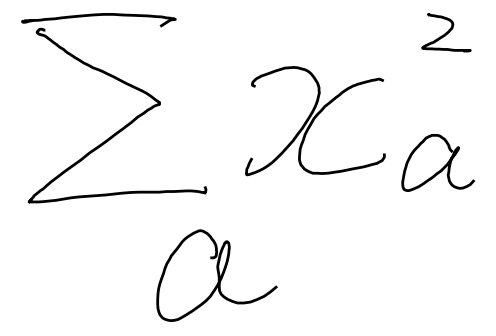 \sum_{a} x_{a}^{2}